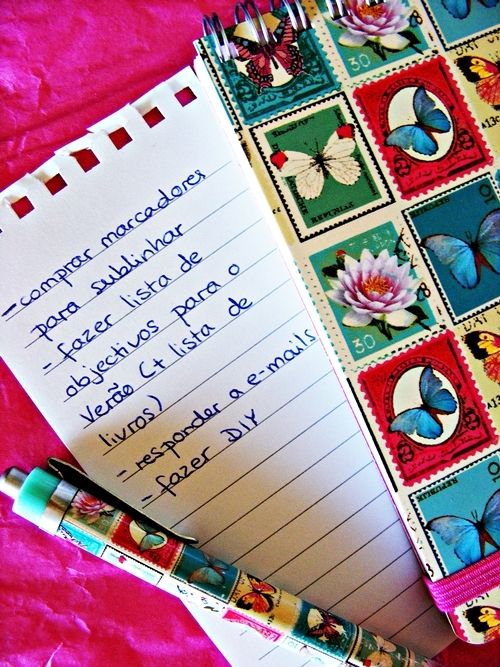 - comprar marcadores
para sublinhar
- fazer lista de
objectivos para o
verão (+ lista de
livros)
- responder a e-mails
- fazer DIY
30
30